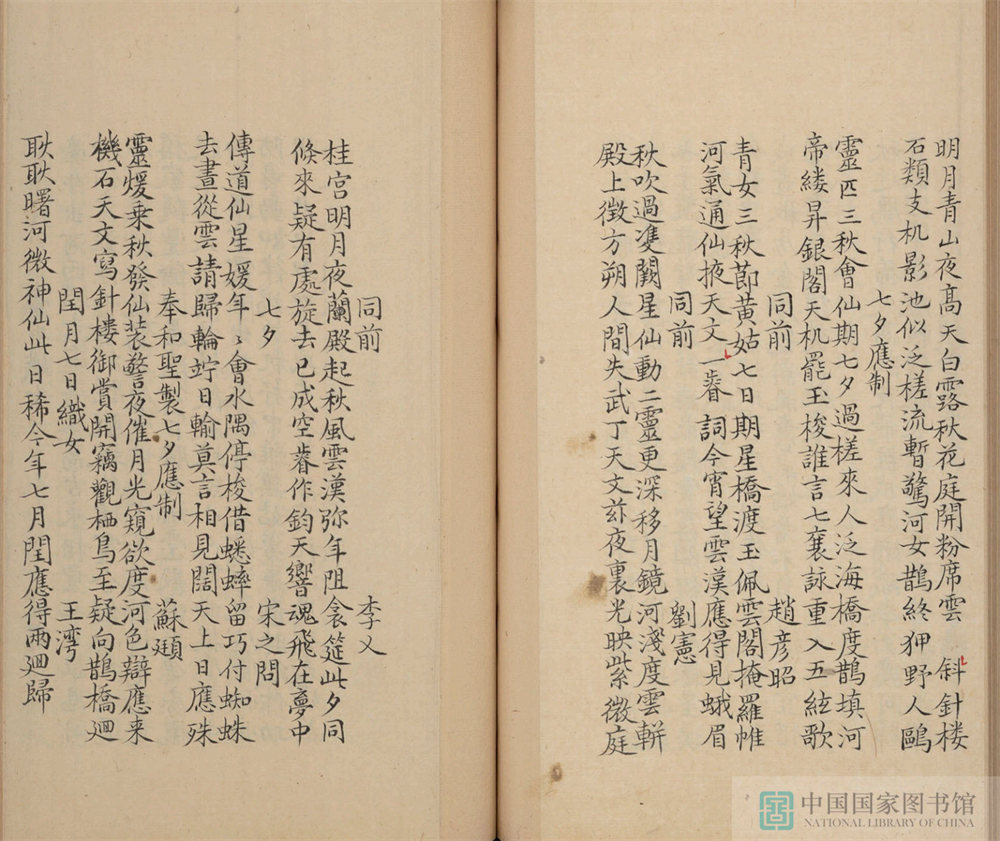 明月青山夜髙天白露秋花庭開粉席雲 斜針楼
石類支机影池似泛槎流暫驚河女鵲終狎野人鷗
七夕應制
靈匹三秋會仙期七夕過槎來人泛海橋度鵲填河
帝縷昇銀閣天机罷玉梭誰言七襄詠重入五絃歌
同前 趙彦昭
青女三秋莭黄姑七日期星橋渡玉佩雲閣掩羅帷
河氣通仙掖天文一睿詞今宵望雲漢應得見蛾眉
同前 劉憲
秋吹過雙闕星仙動二靈更深移月鏡河淺度雲輧
殿上徴方朔人間失武丁天文茲夜裏光映紫微庭
同前 李乂
桂宫明月夜蘭殿起秋風雲漢弥年阻衾筵此夕同
倐來疑有處旋去已成空睿作鈞天響魂飛在夢中
七夕 宋之問
傳道仙星媛年〻會水隅停梭借蟋蟀留巧付蜘蛛
去晝從雲請歸輪竚日輸莫言相見闊天上日應殊
奉和聖製七夕應制 蘇頲
靈煖乗秋發仙装警夜催月光窺欲度河色辯應来
機石天文寫針樓御賞開竊觀栖鳥至疑向鵲橋廻
閏月七日織女 王湾
耿耿曙河微神仙此日稀今年七月閏應得兩廻歸
中国国家图书馆
NATIONAL LIBRARY OF CHINA